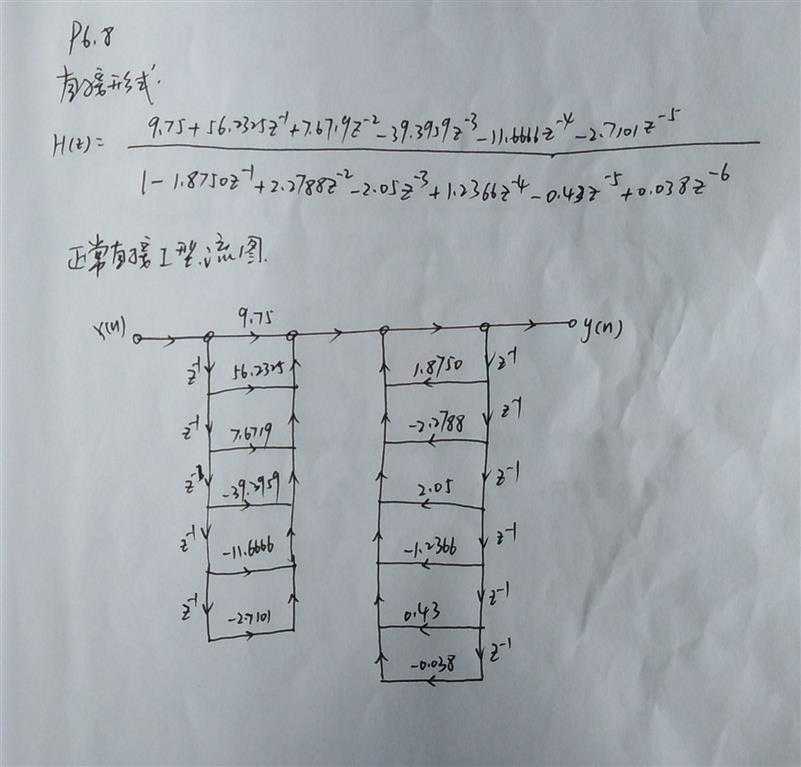 P6.8
直接形式:
H(z) =
9.75+56.2325z⁻¹+7.6719z⁻²-39.3959z⁻³-11.6666z⁻⁴-2.7101z⁻⁵
1-1.8750z⁻¹+2.2788z⁻²-2.05z⁻³+1.2366z⁻⁴-0.43z⁻⁵+0.038z⁻⁶
正常直接I型流图.
x(n) 9.75 y(n)
z⁻¹ 56.2325 1.8750 z⁻¹
z⁻¹ 7.6719 -2.2788 z⁻¹
z⁻¹ -39.3959 2.05 z⁻¹
z⁻¹ -11.6666 -1.2366 z⁻¹
z⁻¹ -2.7101 0.43 z⁻¹
-0.038 z⁻¹